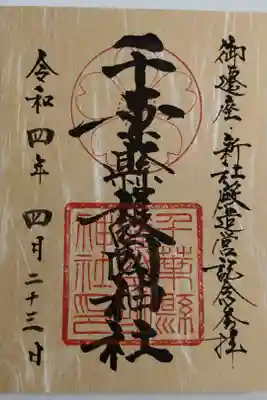 御遷座・新社殿造営記念奉拝
千葉縣護國神社
千葉縣
護國
神社印
令和四年 四月二十三日